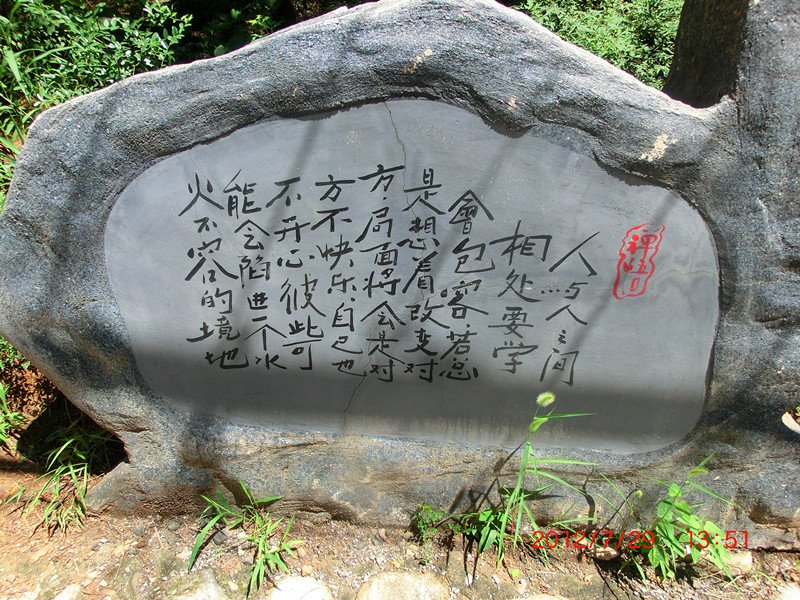 禪悟
人…与人之间
相处要学
會包容.若总
是想着改变对
方.局面将会是对
方不快乐.自己也
不开心彼此可
能会陷进一个水
火不容的境地
2012/7/29 13:51